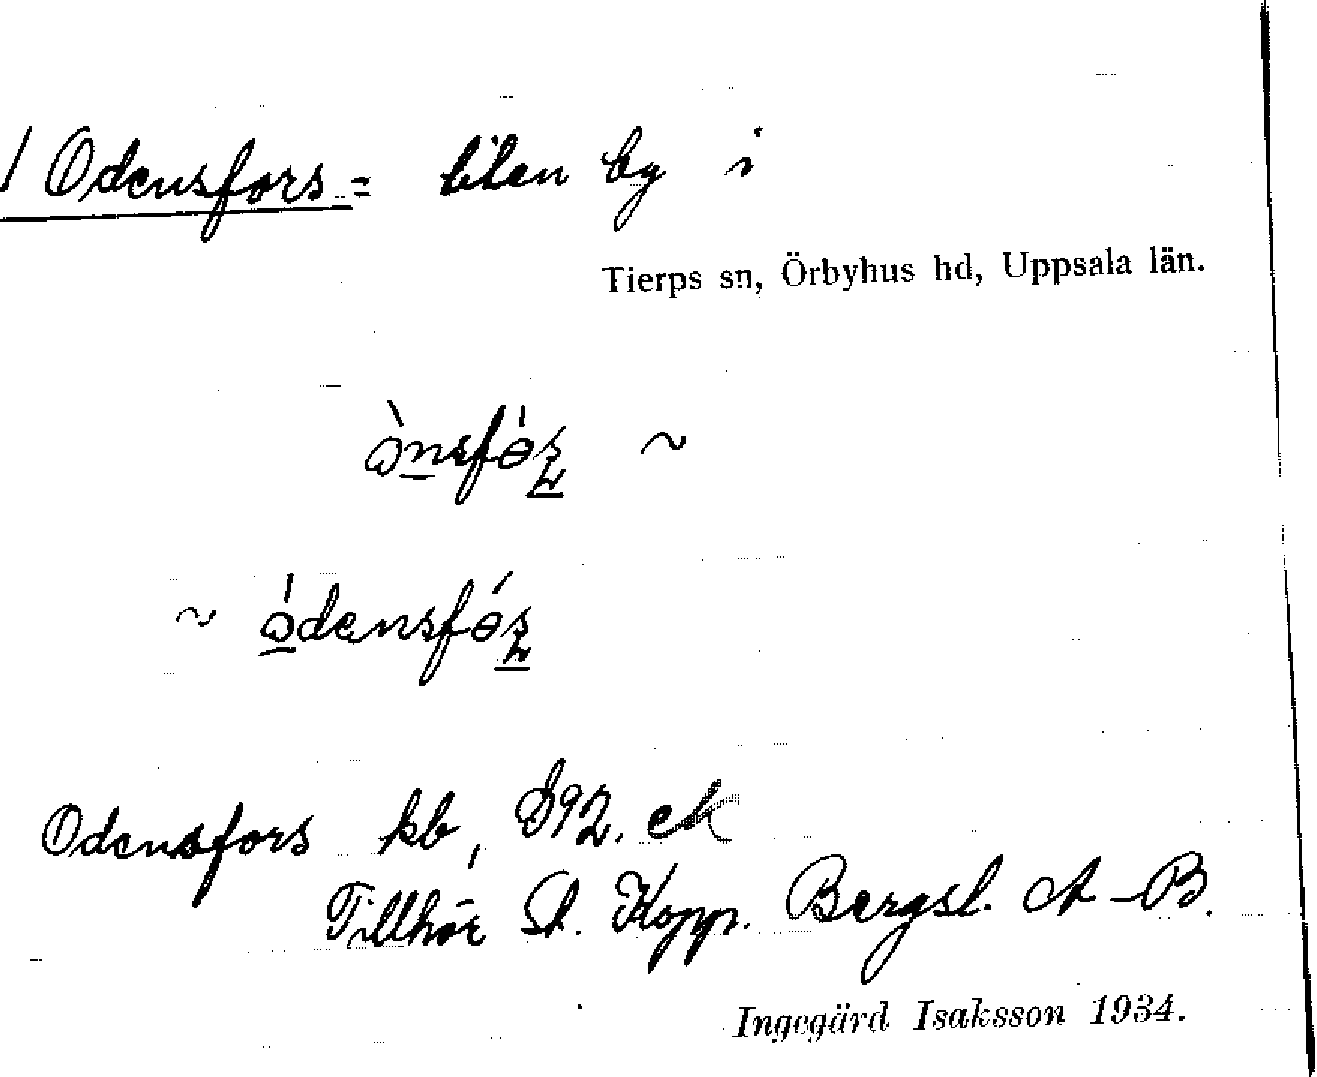 Odensfors = liten by i
Tierps sn, Örbyhus hd, Uppsala län.
~
~
Odensfors kb, ek
Tillhör St. Kopp. Bergsl. A-B.
Ingegärd Isaksson 1934.